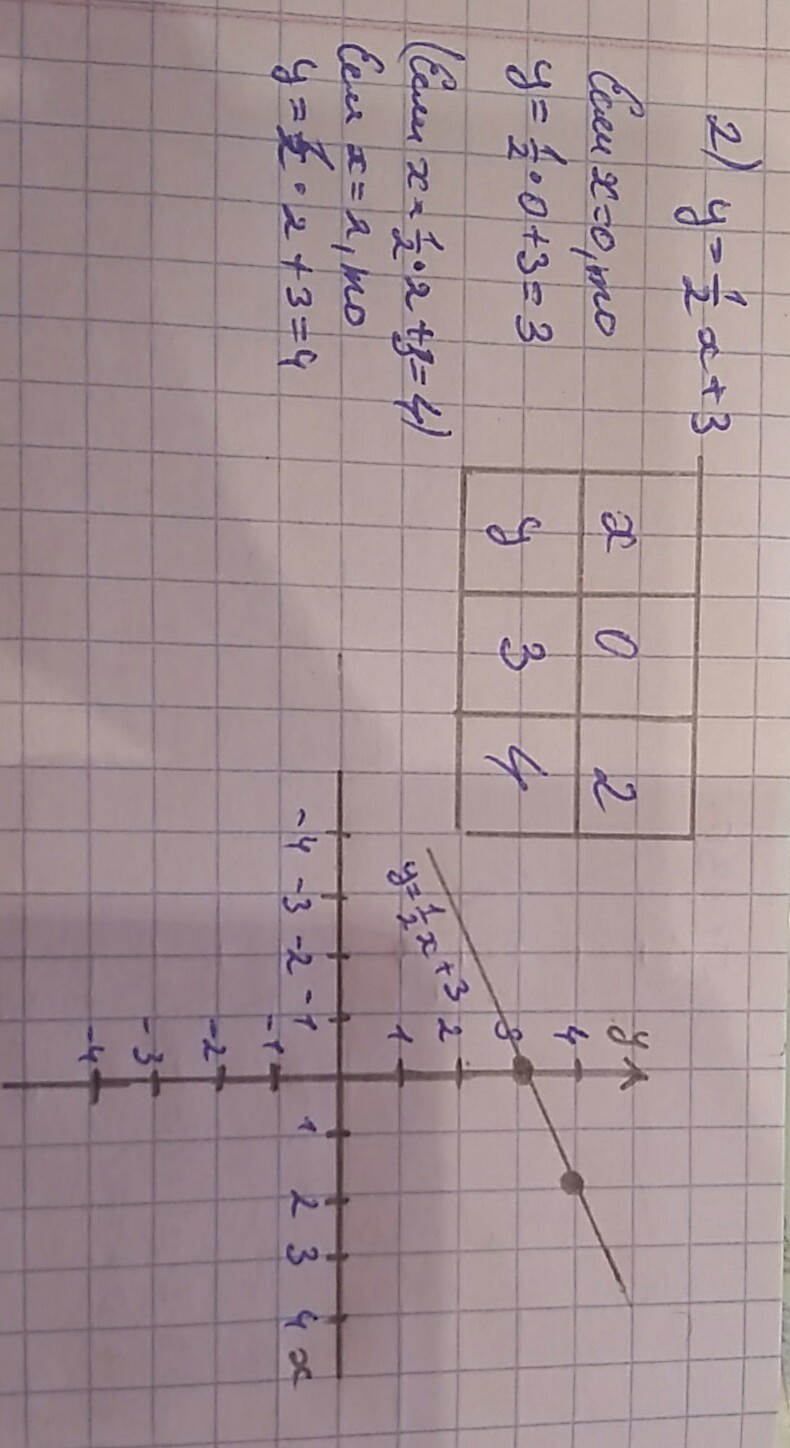 2) y = 1/2 x + 3
Если x = 0, то
y = 1/2 · 0 + 3 = 3
(Если x = 1/2 · 2 + 3 = 4)
Если x = 2, то
y = 1/2 · 2 + 3 = 4
x 0 2
y 3 4
y
4
3
2
1
y = 1/2 x + 3
-4 -3 -2 -1 1 2 3 4 x
-1
-2
-3
-4